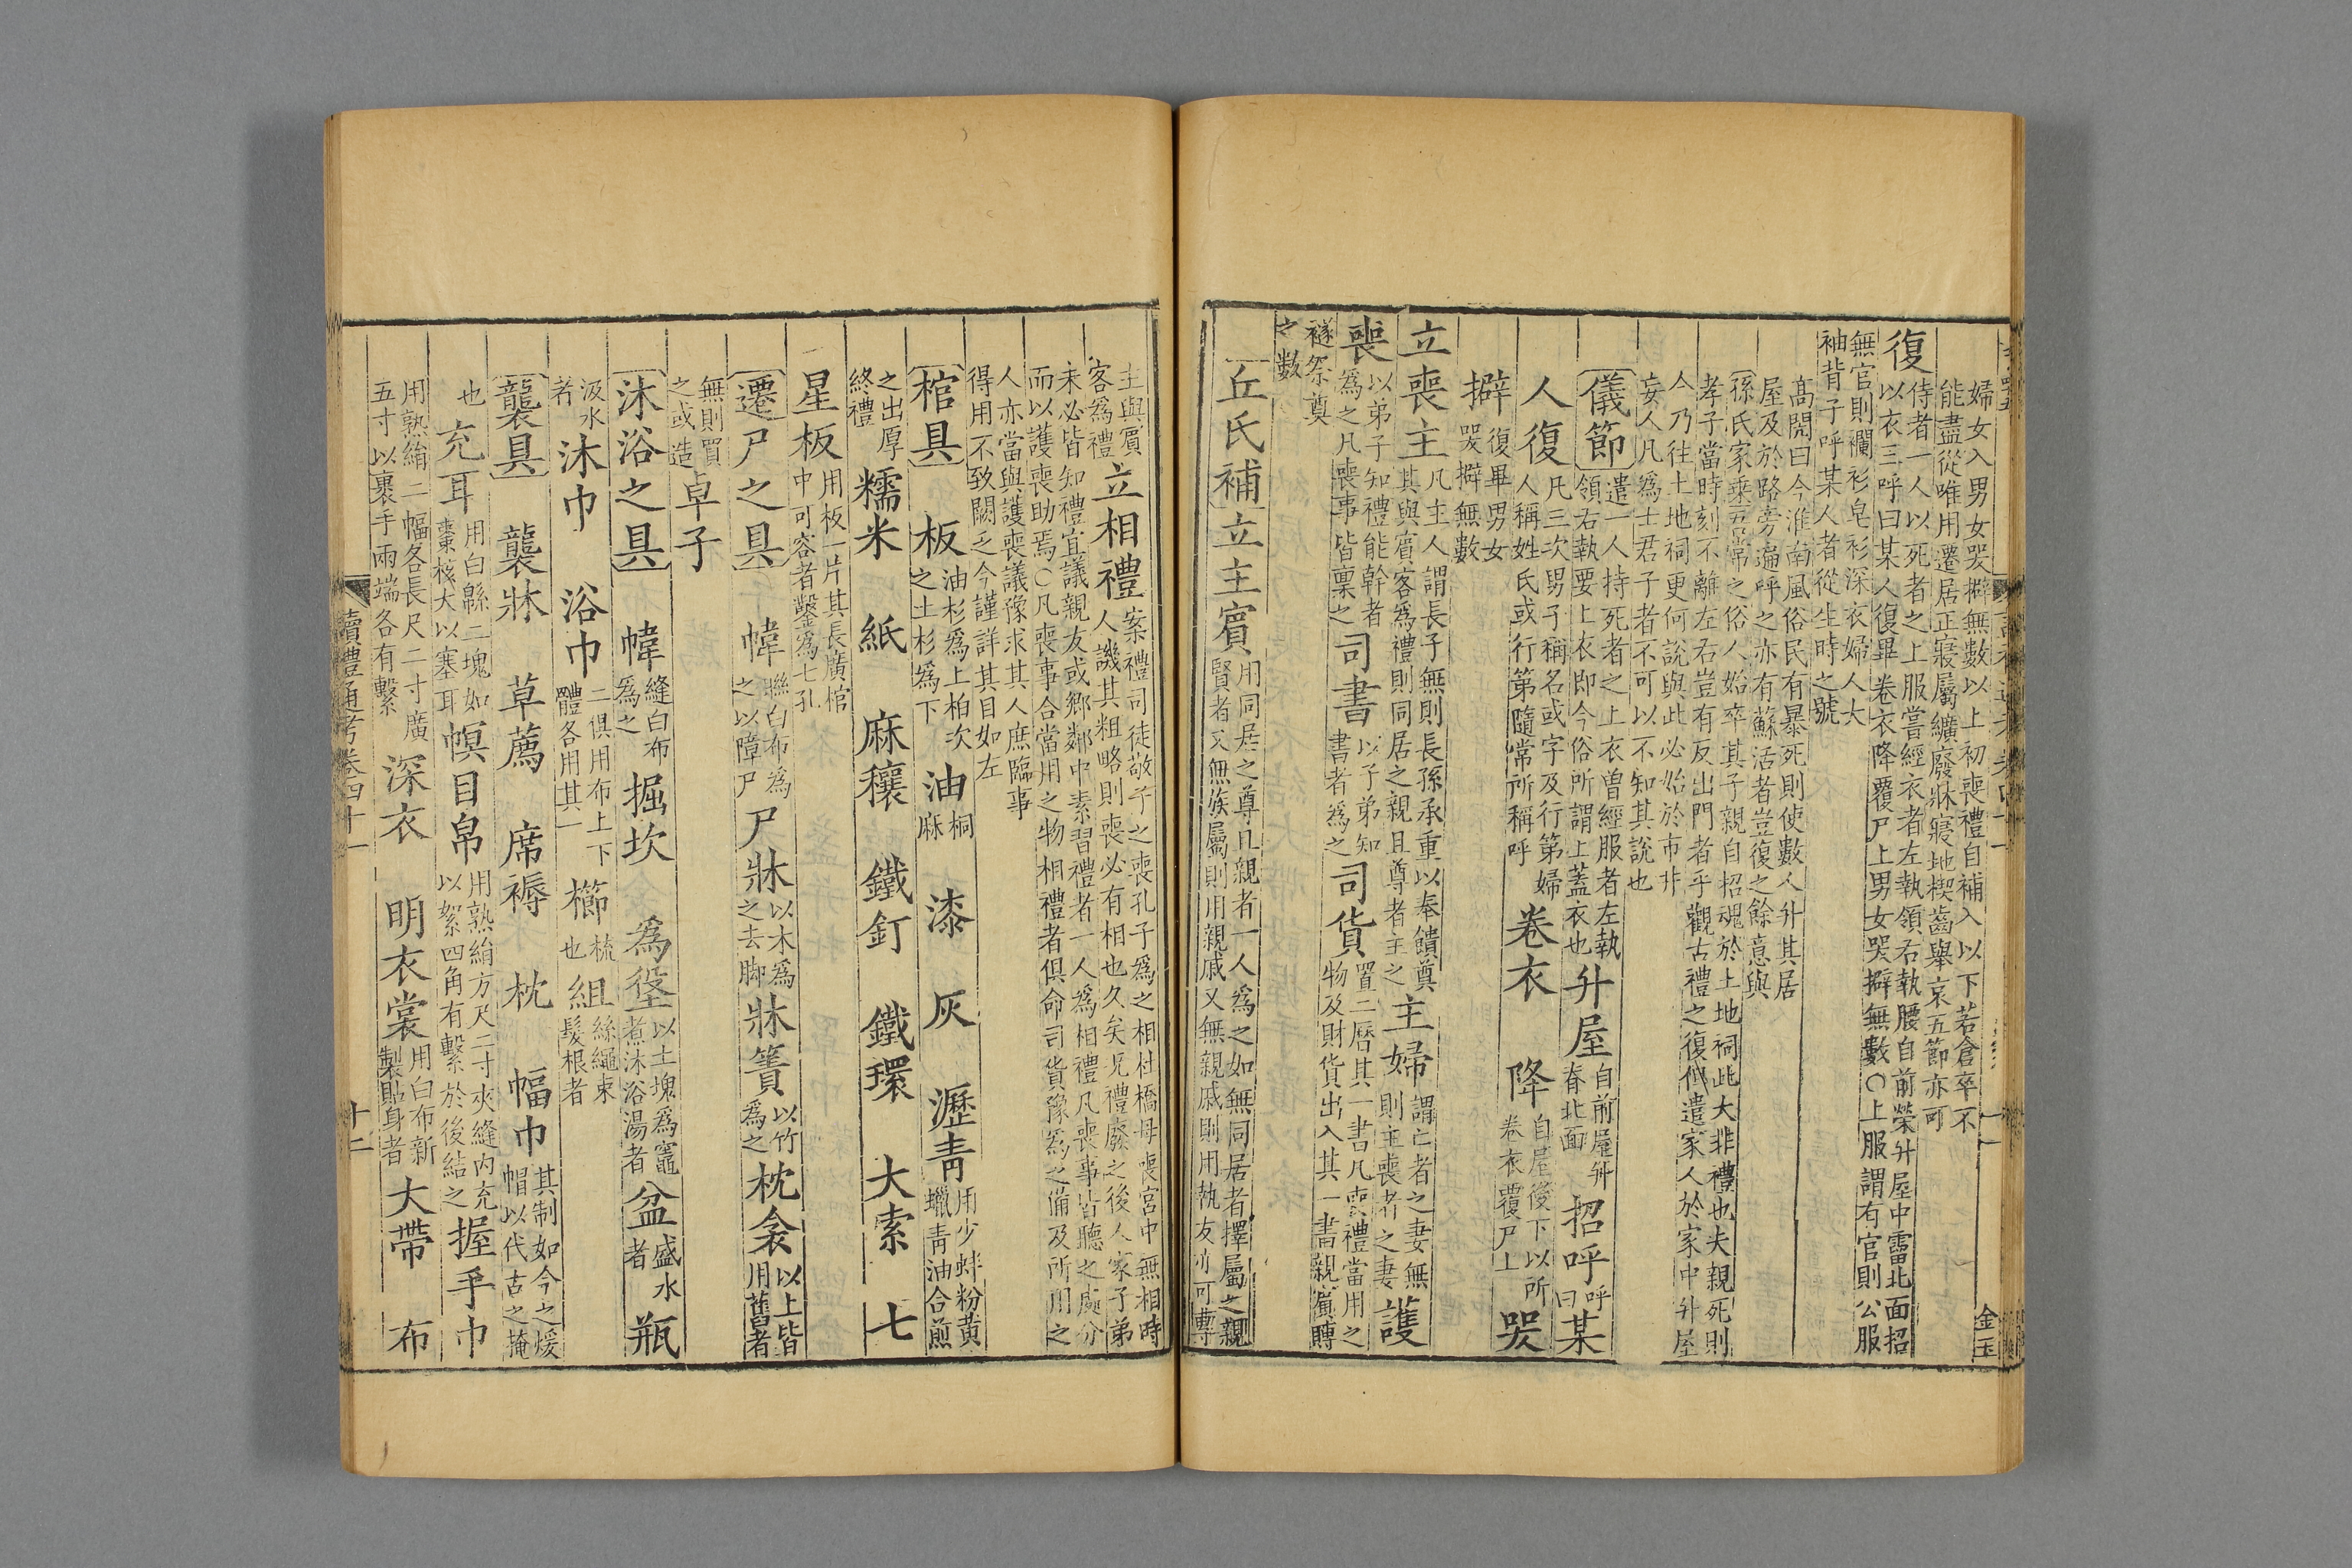 婦女入男女哭擗無數以上初喪禮自補入以下若倉卒不
能盡從唯用遷居正寢屬纊廢牀寢地楔齒舉哀五節亦可
復
侍者一人以死者之上服嘗經衣者左執領右執腰自前榮升屋中霤北面招
以衣三呼曰某人復畢卷衣降覆尸上男女哭擗無數○上服謂有官則公服
無官則襴衫皂衫深衣婦人大
袖背子呼某人者從生時之號
髙閌曰今淮南風俗民有暴死則使數人升其居
屋及於路旁遍呼之亦有蘇活者豈復之餘意與
孫氏家乘五常之俗人始卒其子親自招魂於土地祠此大非禮也夫親死則
孝子當時刻不離左右豈有反出門者乎觀古禮之復似遣家人於家中升屋
人乃往土地祠更何說與此必始於市井
妄人凡爲士君子者不可以不知其說也
儀節
遣一人持死者之上衣曾經服者左執
領右執要上衣即今俗所謂上蓋衣也
升屋
自前屋升
脊北面
招呼
呼
曰
某
人復
凡三次男子稱名或字及行第婦
人稱姓氏或行第隨常所稱呼
卷衣 降
自屋後下以所
卷衣覆尸上
哭
擗
復畢男女
哭擗無數
立喪主
凡主人謂長子無則長孫承重以奉饋奠
其與賓客爲禮則同居之親且尊者主之
主婦
謂亡者之妻無
則主喪者之妻
護
喪
以弟子知禮能幹者
爲之凡喪事皆禀之
司書
以子弟知
書者爲之
司貨
置二曆其一書凡喪禮當用之
物及財貨出入其一書親賓賻
襚祭奠
之數
丘氏補
立主賓
用同居之尊且親者一人爲之如無同居者擇屬之親
賢者又無族屬則用親戚又無親戚則用執友亦可專
主與賓
客爲禮
立相禮
案禮司徒敬子之喪孔子爲之相杜橋母喪宮中無相時
人譏其粗略則喪必有相也久矣凡禮廢之後人家子弟
未必皆知禮宜議親友或鄉鄰中素習禮者一人爲相禮凡喪事皆聽之處分
而以護喪助焉○凡喪事合當用之物相禮者俱命司貨豫爲之備及所用之
人亦當與護喪議豫求其人庶臨事
得用不致闕乏今謹詳其目如左
棺具
板
油杉爲上柏次
之土杉爲下
油
桐
麻
漆 灰 瀝靑
用少蚌粉黃
蠟靑油合煎
之出厚
終禮
糯米 紙 麻穰 鐵釘 鐵環 大索 七
星板
用板一片其長廣棺
中可容者鑿爲七孔
遷尸之具
幃
聯白布爲
之以障尸
尸牀
以木爲
之去脚
牀簀
以竹
爲之
枕衾
以上皆
用舊者
無則買
之或造
卓子
沐浴之具
幃
縫白布
爲之
掘坎 爲垼
以土塊爲竈
煮沐浴湯者
盆
盛水
者
瓶
汲水
者
沐巾 浴巾
二俱用布上下
體各用其一
櫛
梳
也
組
絲繩束
髮根者
襲具
襲牀 草薦 席褥 枕 幅巾
其制如今之煖
帽以代古之掩
也
充耳
用白緜二塊如
棗核大以塞耳
幎目帛
用熟絹方尺二寸夾縫內充
以絮四角有繫於後結之
握手巾
用熟絹二幅各長尺二寸廣
五寸以裹手兩端各有繫
深衣 明衣裳
用白布新
製貼身者
大帶 布
讀禮通考卷四十一
十二
金玉